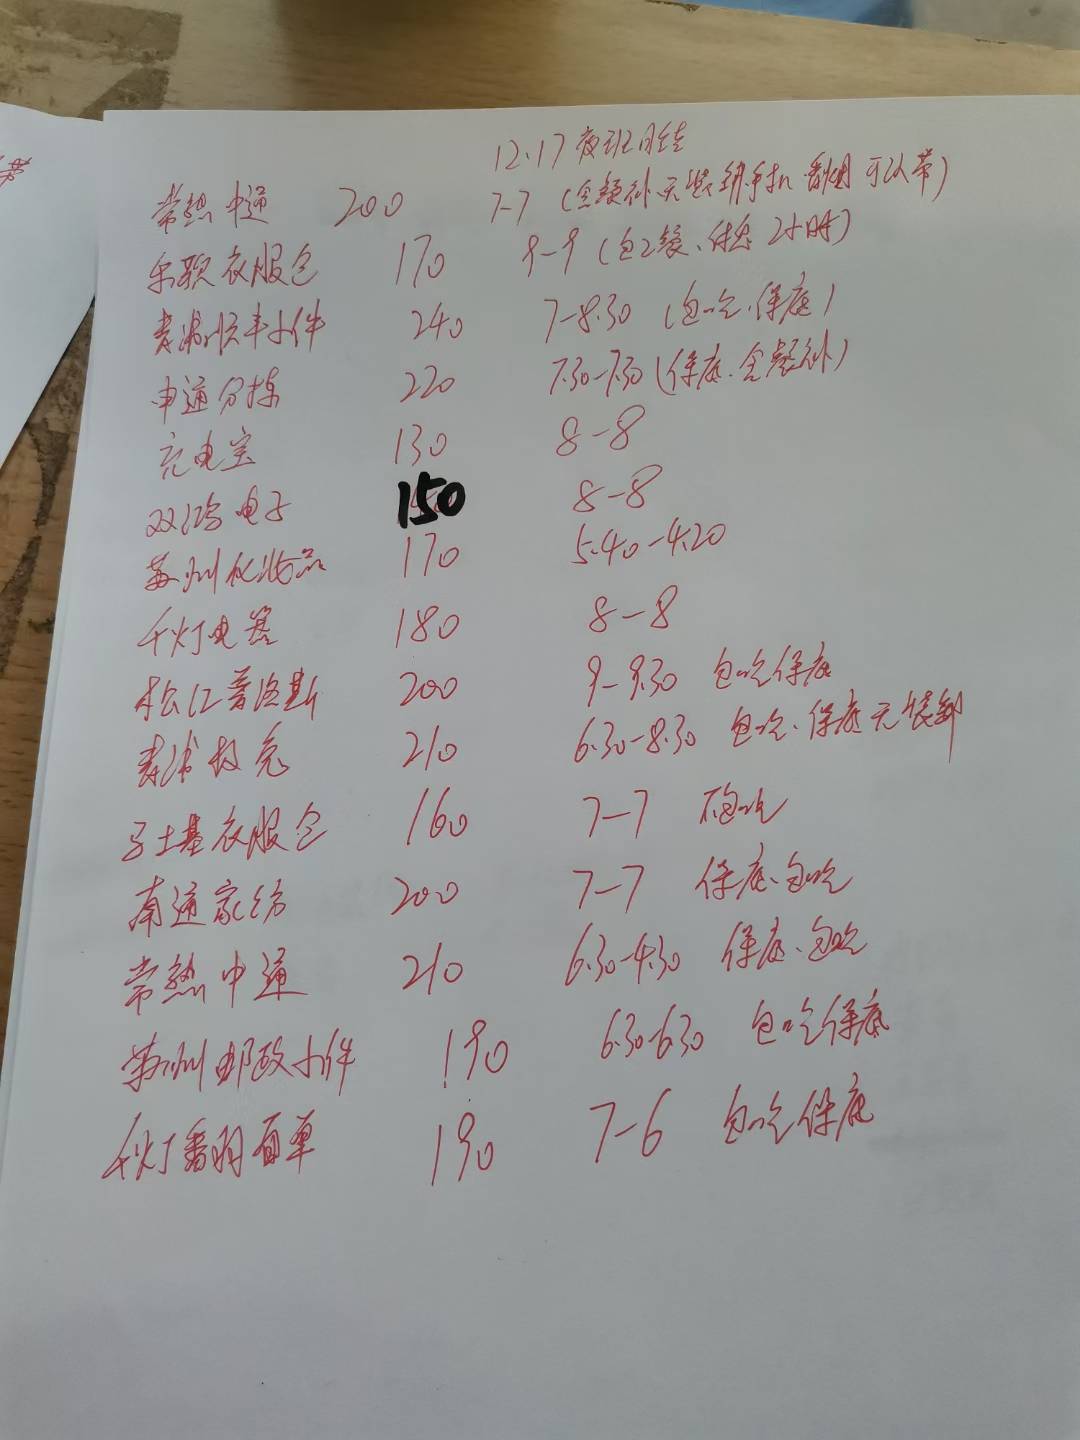 12.17夜班日结
常熟中通 200 7-7 (含餐补 无装卸 手机 香烟 可以带)
乐颐衣服仓 170 9-9 (包2餐、休息2小时)
青浦顺丰小件 240 7-8.30 (包吃、保底)
申通分拣 220 7.30-7.30 (保底、含餐补)
充电宝 130 8-8
双鸿电子 150 8-8
苏州化妆品 170 5.40-4.20
千灯电器 180 8-8
松江普洛斯 200 9-9.30 包吃保底
青浦极兔 210 6.30-8.30 包吃、保底无装卸
马士基衣服仓 160 7-7 不包吃
南通家纺 200 7-7 保底、包吃
常熟中通 210 6.30-4.30 保底、包吃
苏州邮政小件 190 6.30-6.30 包吃保底
千灯 面单 190 7-6 包吃保底
带